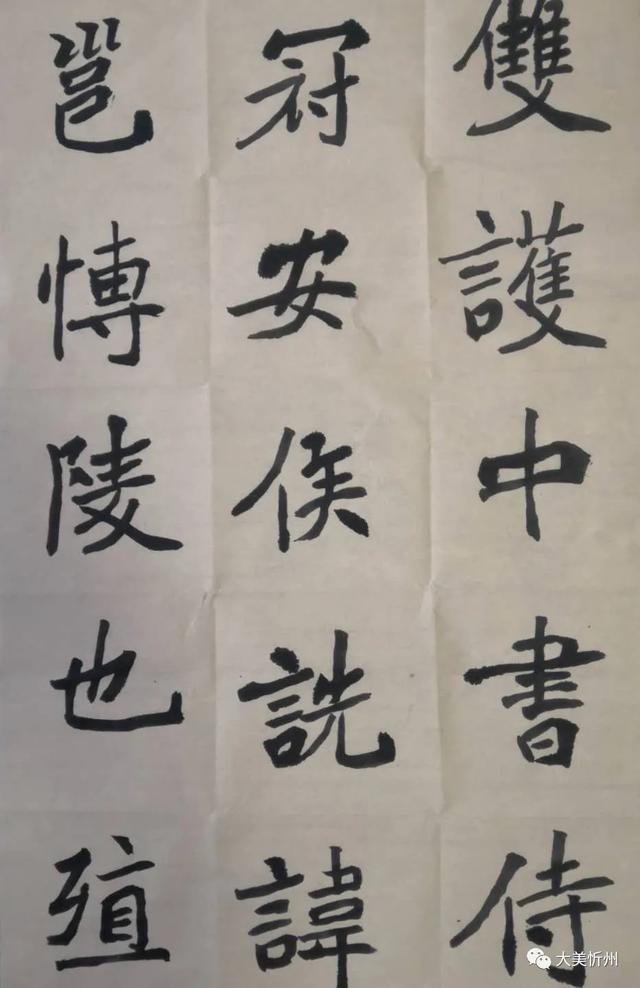 雙護中書侍
冠安侯詵諱
邕愽陵也殖
大美忻州